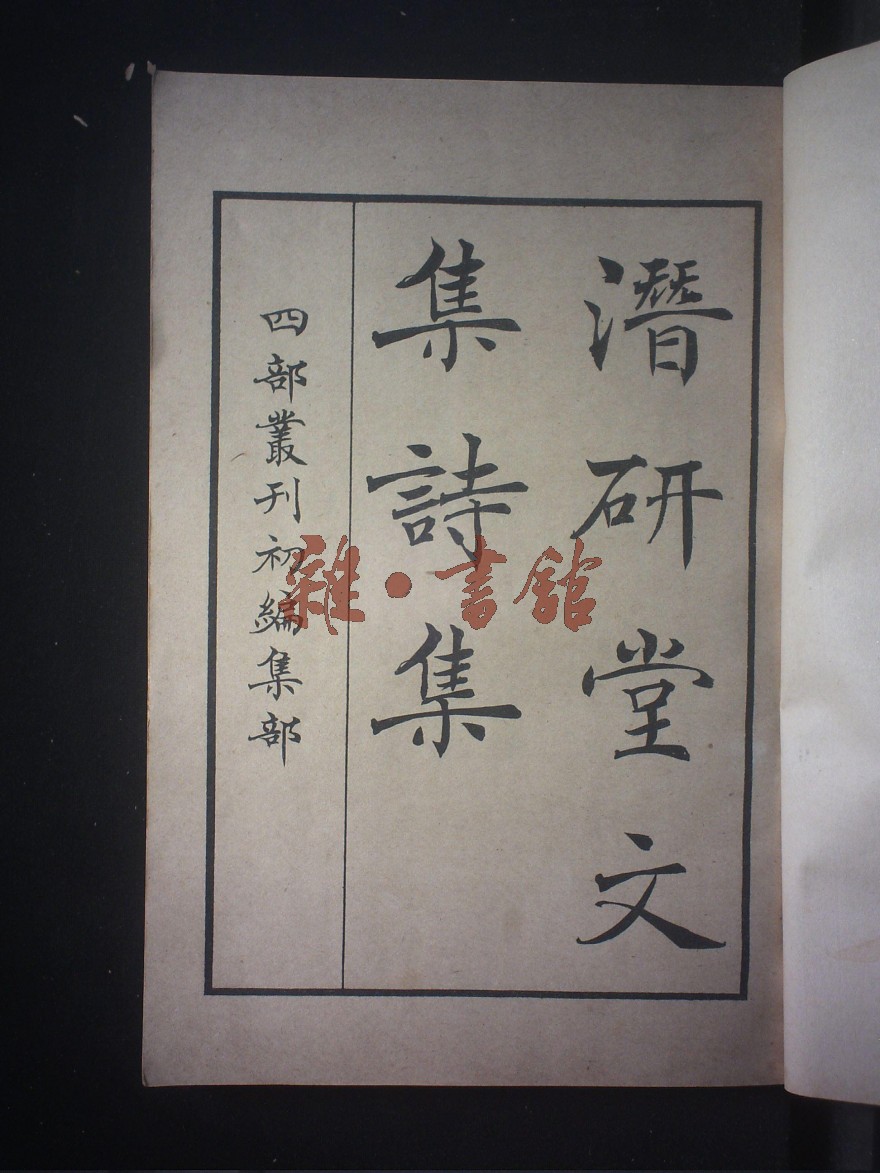 潛研堂文
集詩集
四部叢刊初編集部
雜·書館